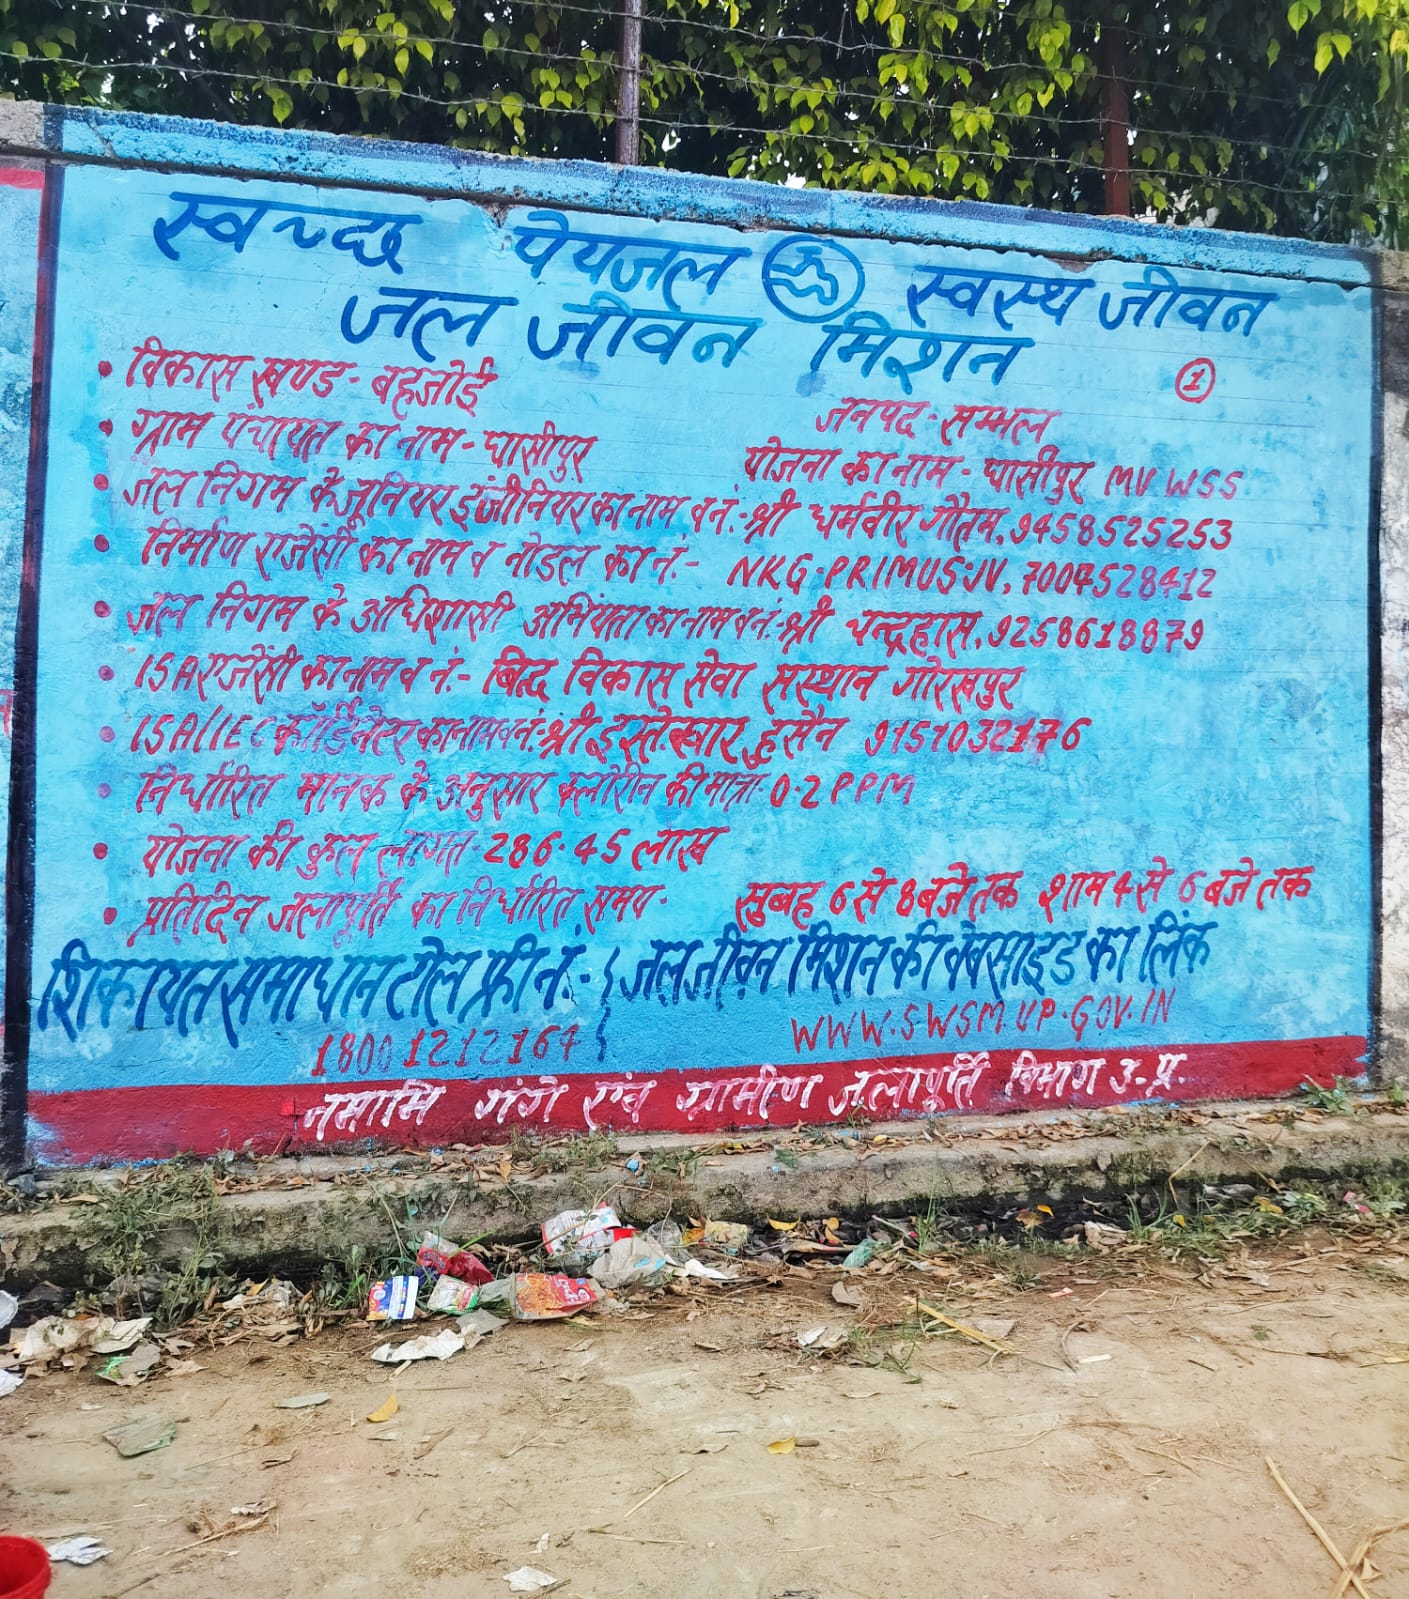 स्वच्छ पेयजल स्वस्थ जीवन
जल जीवन मिशन
1
• विकास खण्ड - बहजोई जनपद - सम्भल
• ग्राम पंचायत का नाम - घासीपुर योजना का नाम - घासीपुर MV WSS
• जल निगम के जूनियर इंजीनियर का नाम व नं:- श्री धर्मवीर गौतम, 9458525253
• निर्माण एजेंसी का नाम व नोडल का नं:- NKG-PRIMUS-JV, 7004528412
• जल निगम के अधिशासी अभियंता का नाम व नं:- श्री चन्द्रहास, 9258618879
• ISA एजेंसी का नाम व नं:- बिद्ध विकास सेवा सस्थान गोरखपुर
• ISA/IEC कॉर्डिनेटर का नाम व नं:- श्री इस्तेख्वार हुसैन 9151032176
• निर्धारित मानक के अनुसार क्लोरीन की मात्रा- 0.2 PPM
• योजना की कुल लागत- 286.45 लाख
• प्रतिदिन जलापूर्ति का निर्धारित समय- सुबह 6 से 8 बजे तक शाम 4 से 6 बजे तक
शिकायत समाधान टोल फ्री नं:- जल जीवन मिशन की वेबसाइड का लिंक
18001212164 WWW.SWSM.UP.GOV.IN
नमामि गंगे एंव ग्रामीण जलापूर्ति विभाग उ.प्र.